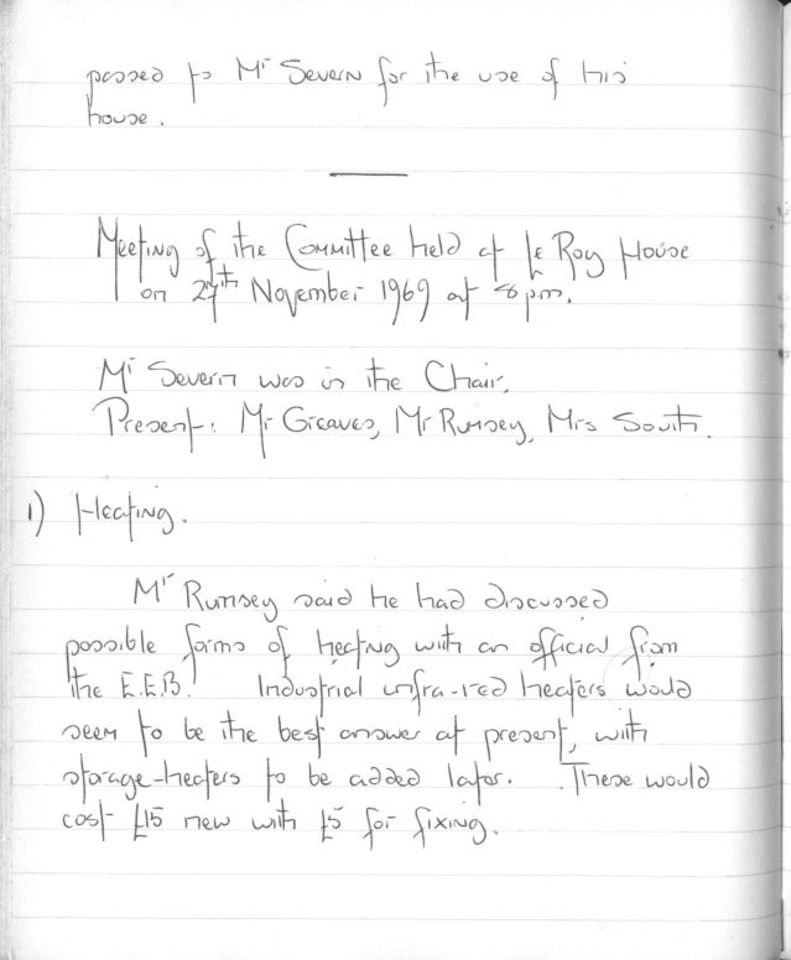 passed to Mr Severn for the use of his
house.
Meeting of the Committee held at Le Roy House
on 27th November 1969 at 8 pm.
Mr Severn was in the Chair.
Present: Mr Greaves, Mr Rumsey, Mrs South.
1) Heating.
Mr Rumsey said he had discussed
possible forms of heating with an official from
the E.E.B. Industrial infra-red heaters would
seem to be the best answer at present, with
storage-heaters to be added later. These would
cost £15 new with £5 for fixing.